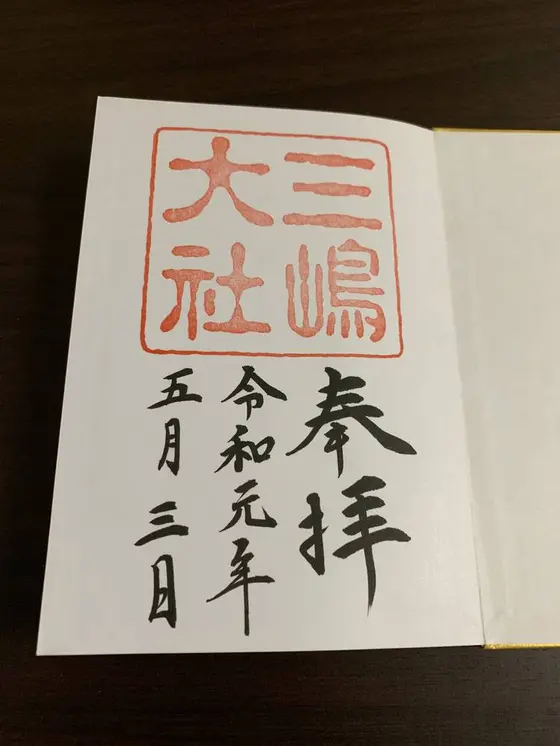 三嶋
大社
奉拝
令和元年
五月三日